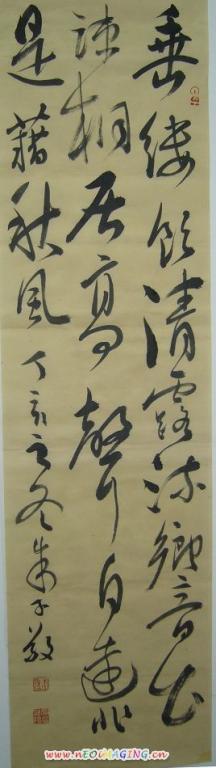 垂緌饮清露流響音出
疎桐居高聲自遠非
是藉秋風 丁亥之冬朱子敬
www.nEOIMAGING.cn